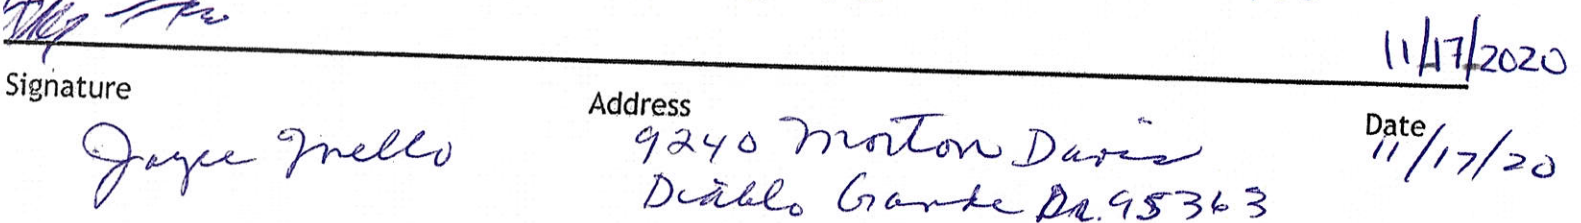 11/17/2020
Signature Address Date
Joyce Mello 9240 Morton Davis 11/17/20
Diablo Grande DR. 95363